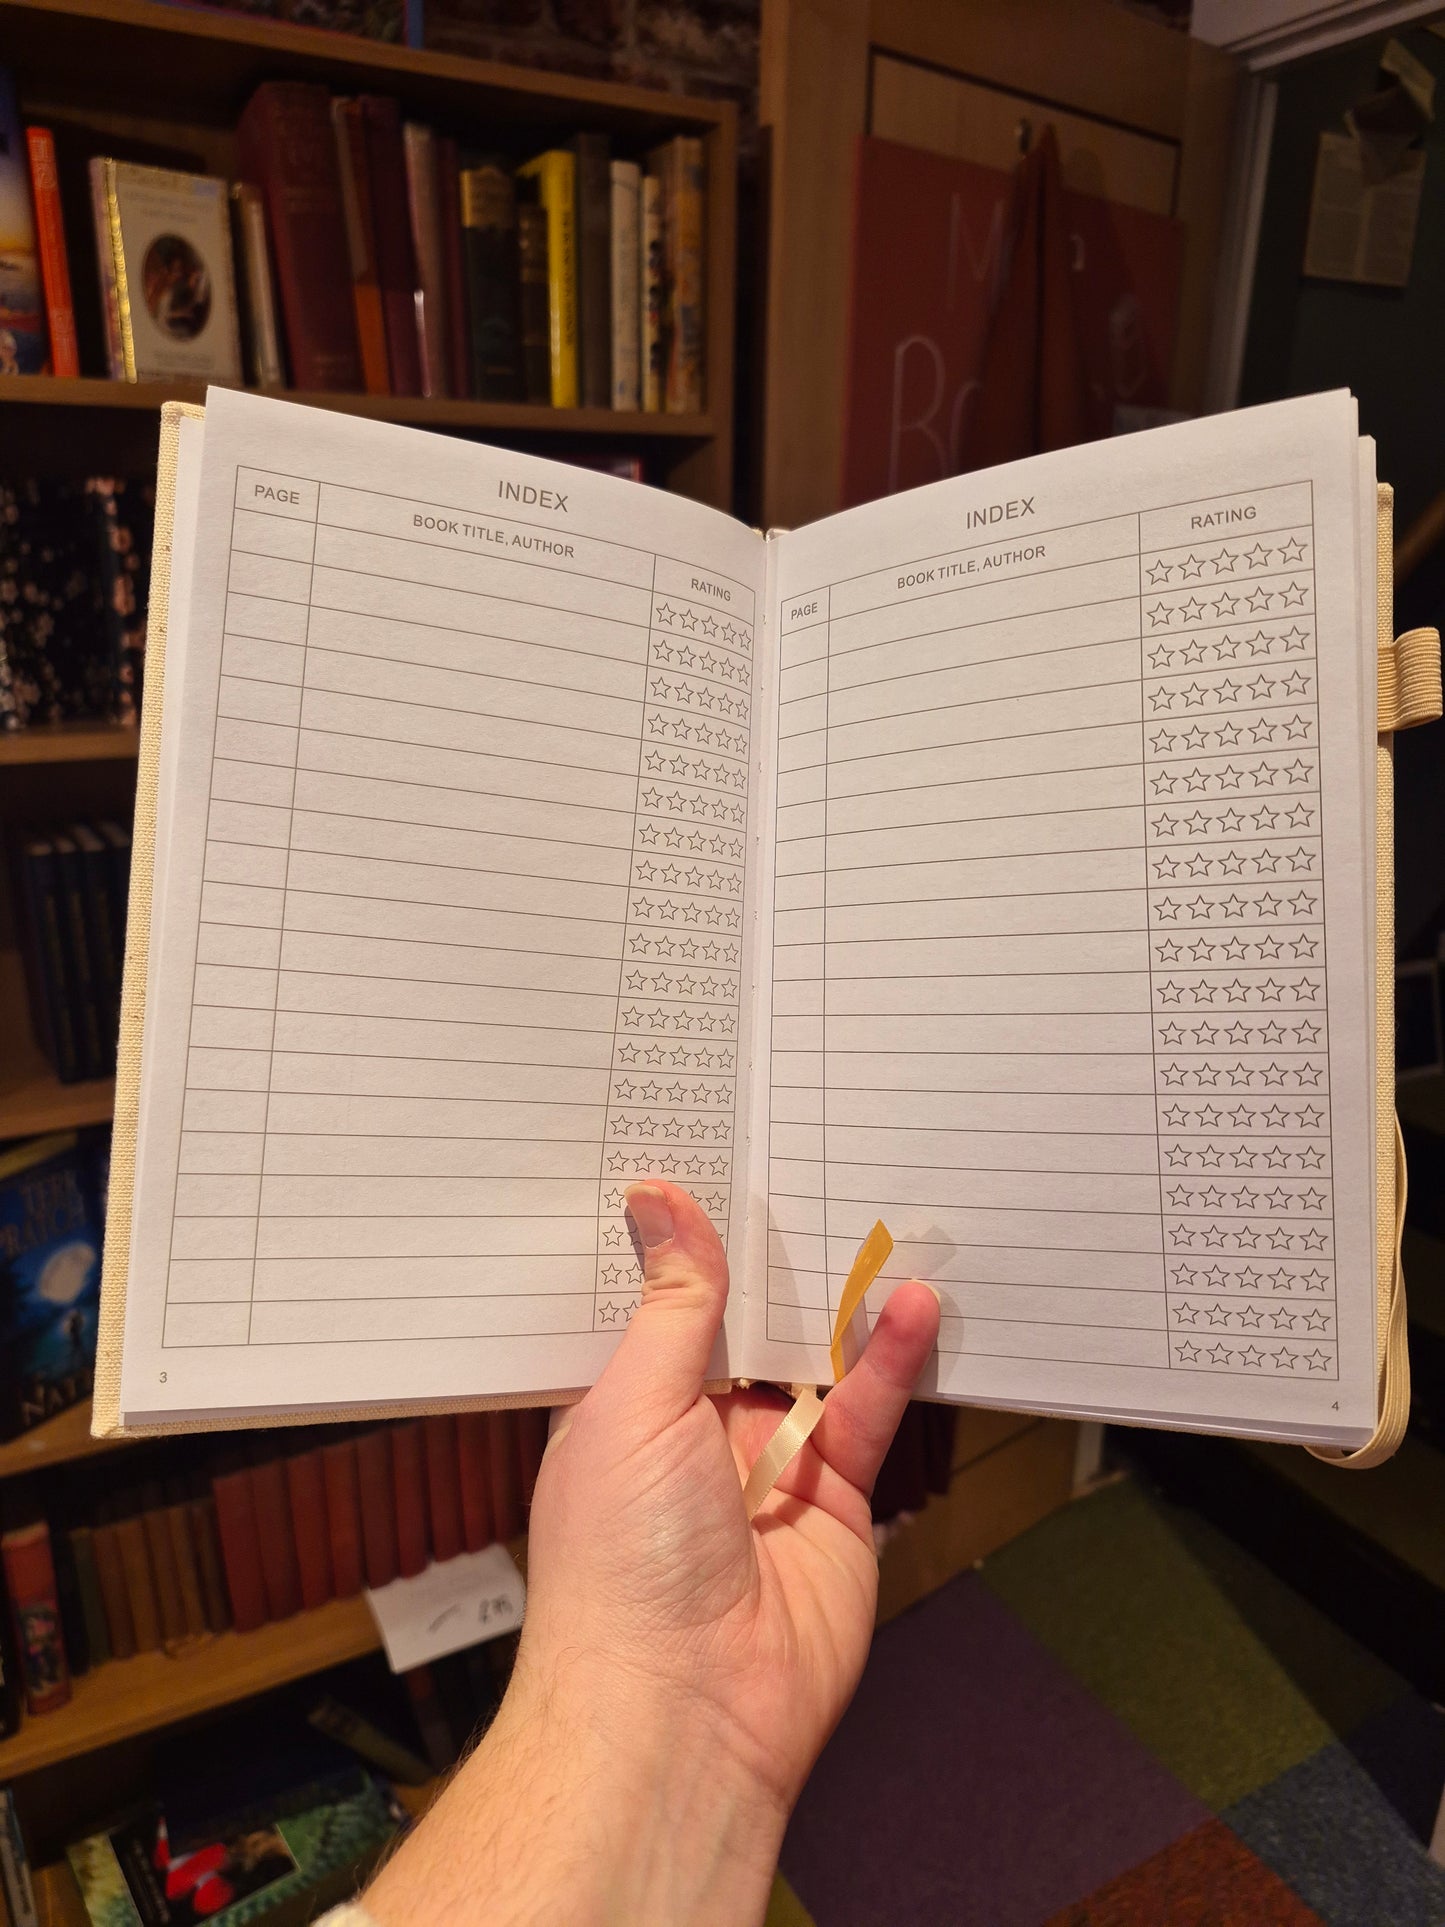 INDEX
PAGE
BOOK TITLE, AUTHOR
RATING
3
INDEX
PAGE
BOOK TITLE, AUTHOR
RATING
4